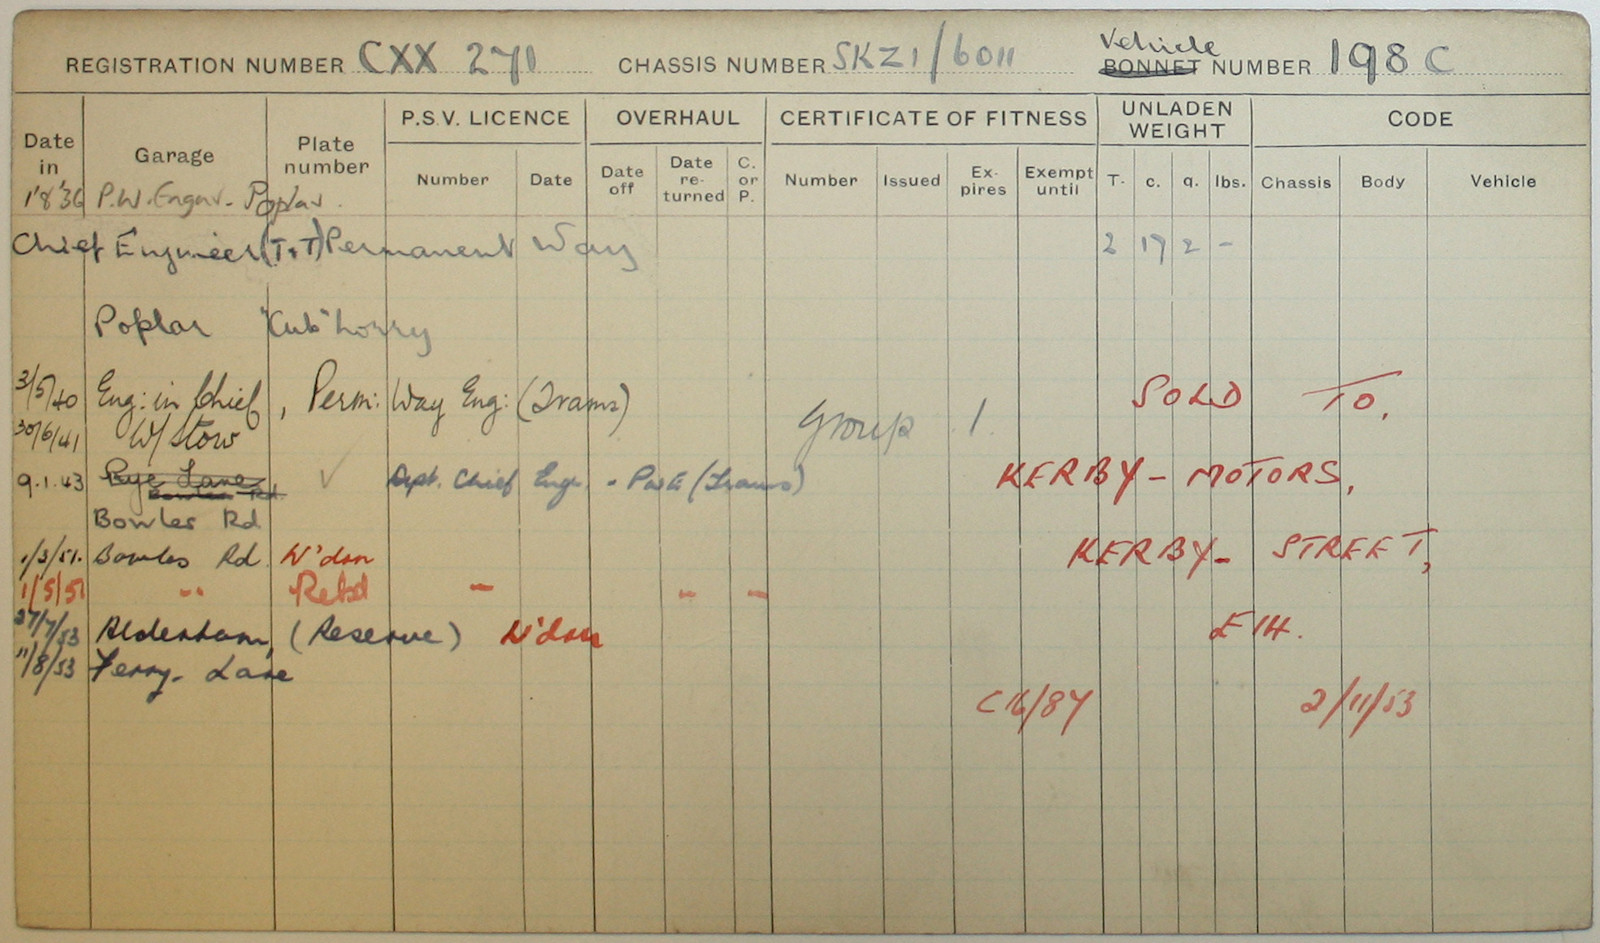 REGISTRATION NUMBER CXX 271 CHASSIS NUMBER SKZ1/6011 Vehicle BONNET NUMBER 198 C
P.S.V. LICENCE OVERHAUL CERTIFICATE OF FITNESS UNLADEN WEIGHT CODE
Date in Garage Plate number Number Date Date off Date re-turned C. or P. Number Issued Ex-pires Exempt until T. C. Q. lbs. Chassis Body Vehicle
1'8'36 P.W. Engnr. Poplar.
Chief Engineer (T&T) Permanent Way 2 17 2 -
Poplar "Cub" Lorry
3/5/40 Eng: in Chief, Perm: Way Eng: (Trams) SOLD TO,
30/6/41 W/stow Group 1.
9.1.43 Rye Lane ✓ Dept. Chief Engr. - PWE (Trams) KERBY - MOTORS,
Bowles Rd
Bowles Rd
1/3/51. Bowles Rd W'dn KERBY - STREET,
1/5/51 " Retd - - -
27/7/53 Aldenham, (Reserve) W'dn E14.
11/8/53 Ferry Lane
C16/87 2/11/53